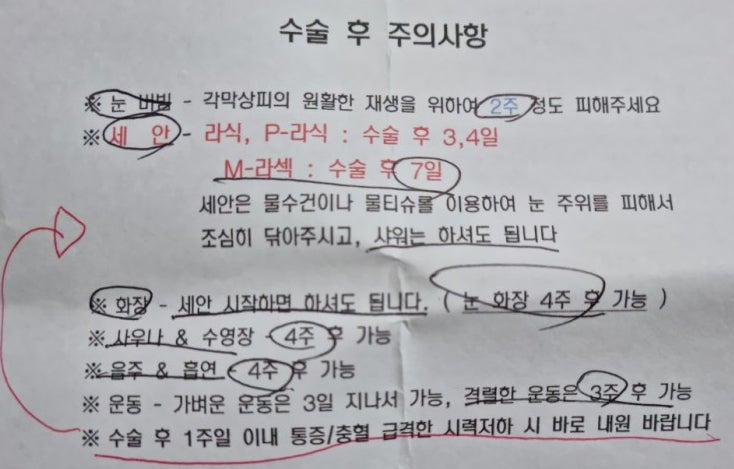 수술 후 주의사항
※ 눈 비빔 - 각막상피의 원활한 재생을 위하여 2주 정도 피해주세요
※ 세 안 - 라식, P-라식 : 수술 후 3,4일
M-라섹 : 수술 후 7일
세안은 물수건이나 물티슈를 이용하여 눈 주위를 피해서
조심히 닦아주시고, 샤워는 하셔도 됩니다
※ 화장 - 세안 시작하면 하셔도 됩니다. ( 눈 화장 4주 후 가능 )
※ 사우나 & 수영장 - 4주 후 가능
※ 음주 & 흡연 - 4주 후 가능
※ 운동 - 가벼운 운동은 3일 지나서 가능, 격렬한 운동은 3주 후 가능
※ 수술 후 1주일 이내 통증/충혈 급격한 시력저하 시 바로 내원 바랍니다